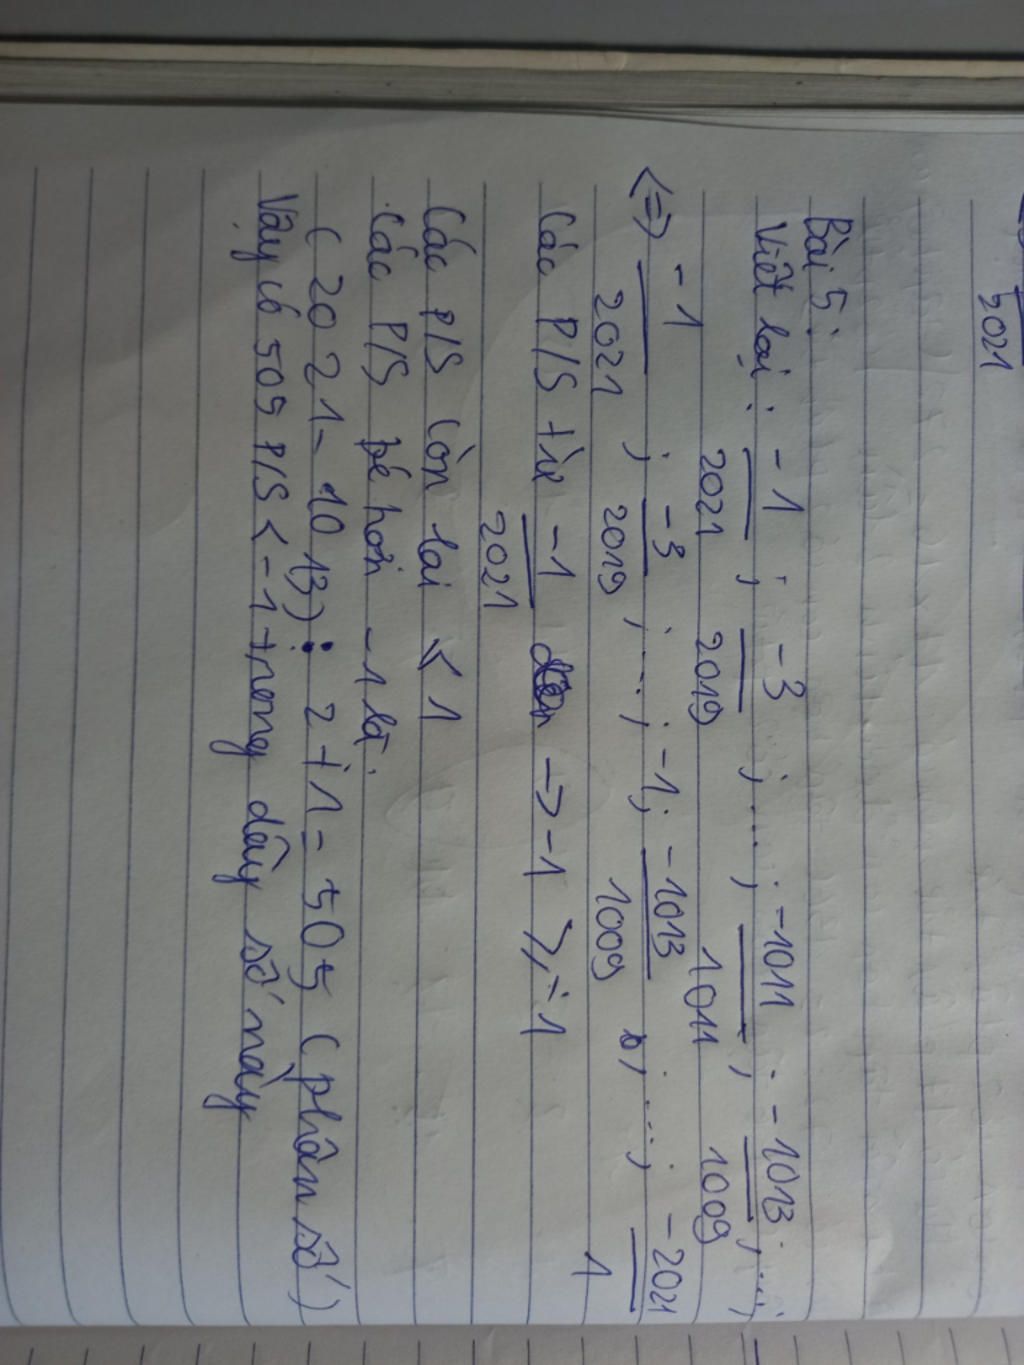 2021
Bài 5:
Viết lại: -1/2021 ; -3/2019 ; ... ; -1011/1011 ; -1013/1009 ; ... ;
<=> -1/2021 ; -3/2019 ; ... ; -1 ; -1013/1009 ; ... ; -2021/1
Các P/S từ -1/2021 -> -1 ⩾ -1
Các P/S còn lại < 1
Các P/S bé hơn -1 là:
(2021 - 1013) : 2 + 1 = 505 (phân số)
Vậy có 505 P/S < -1 trong dãy số này